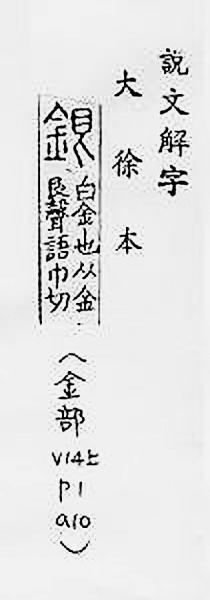 說文解字
大徐本
銀
白金也从金
艮聲語巾切
(金部
V14上
P1
a10)